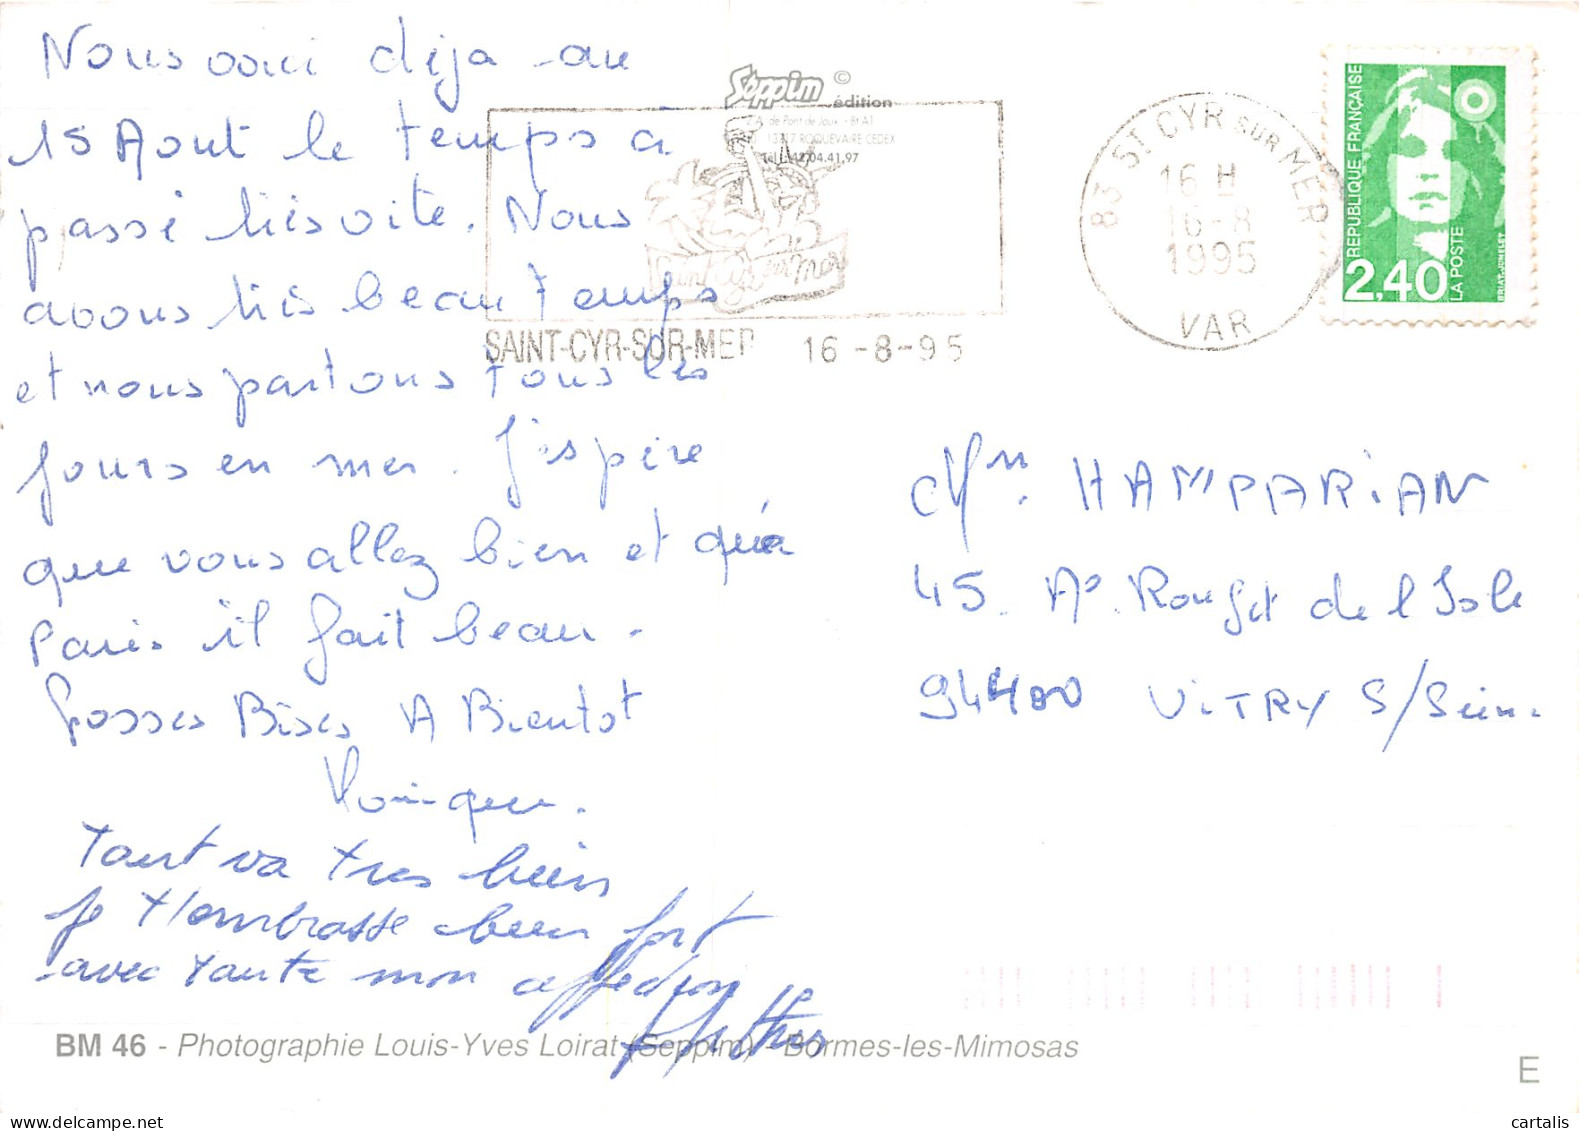 Nous voici déja au
15 Aout le temps à
passé très vite. Nous
avons très beau temps
et nous partons tous les
jours en mer. J'espère
que vous allez bien et qu'à
Paris il fait beau.
Grosses Bises A Bientot
Tout va tres bien
je t'embrasse bien fort
avec toute mon affection
Seppim ©
édition
Z.A. de Pont de Joux - Bt A1
ROQUEVAIRE CEDEX
42.04.41.97
Saint Cyr sur Mer
SAINT-CYR-SUR-MER 16-8-95
83 ST CYR SUR MER
16 H
16-8
1995
VAR
REPUBLIQUE FRANÇAISE
2,40
LA POSTE
BRIAT-JUMELET
HAMPARIAN
45. Rouget de l'Isle
94400 ViTRY S/Seine
BM 46 - Photographie Louis-Yves Loirat (Seppim) - Bormes-les-Mimosas
E
cartalis